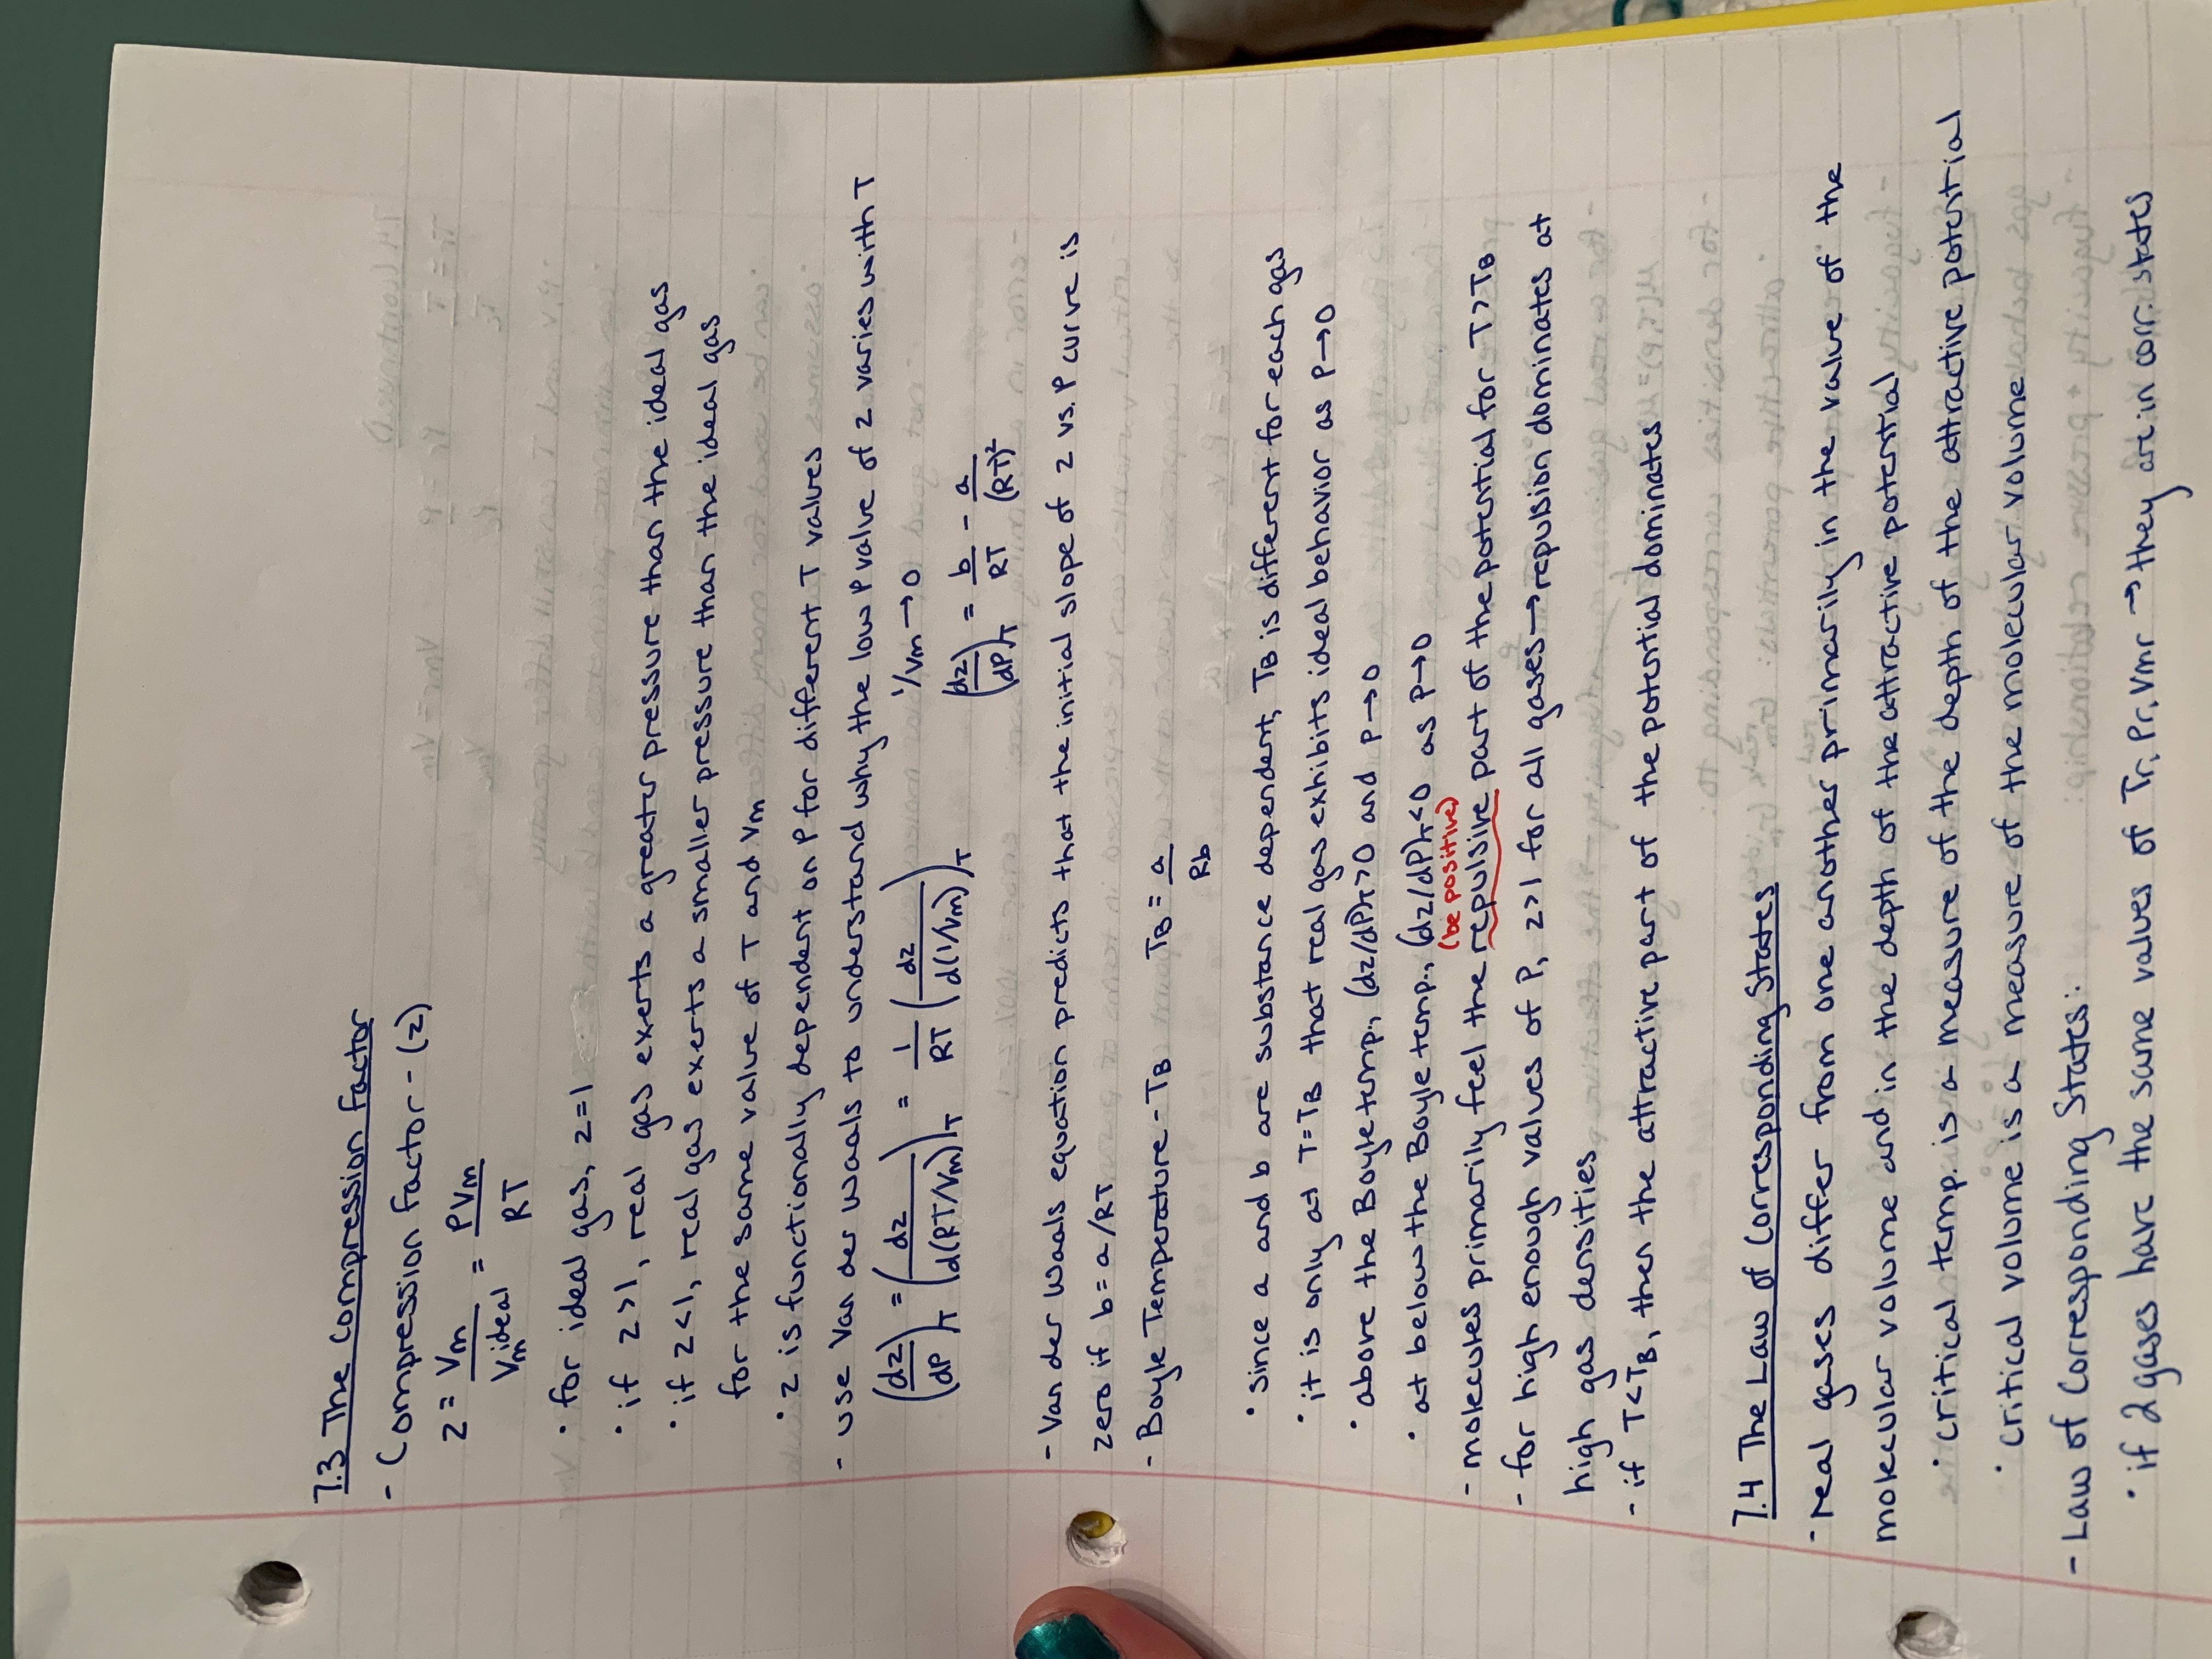 7.3 The Compression Factor
- Compression Factor - (z)
z = Vm / Vm ideal = PVm / RT
• for ideal gas, z=1
• if z>1, real gas exerts a greater pressure than the ideal gas
• if z<1, real gas exerts a smaller pressure than the ideal gas
for the same value of T and Vm
• z is functionally dependent on P for different T values
- use Van der Waals to understand why the low P value of z varies with T
(dz/dP)T = (dz/d(RT/Vm))T = 1/RT (dz/d(1/Vm))T 1/Vm → 0
(dz/dP)T = b/RT - a/(RT)²
- Van der Waals equation predicts that the initial slope of z vs. P curve is
zero if b = a/RT
- Boyle Temperature - TB TB = a/Rb
• since a and b are substance dependent, TB is different for each gas
• it is only at T=TB that real gas exhibits ideal behavior as P→0
• above the Boyle temp., (dz/dP)T>0 and P→0
• at below the Boyle temp., (dz/dP)T<0 as P→0
(be positive)
- molecules primarily feel the repulsive part of the potential for T>TB
- for high enough values of P, z>1 for all gases → repulsion dominates at
high gas densities
- if T<TB, then the attractive part of the potential dominates
7.4 The Law of Corresponding States
- real gases differ from one another primarily in the value of the
molecular volume and in the depth of the attractive potential
• critical temp. is a measure of the depth of the attractive potential
• critical volume is a measure of the molecular volume
- Law of Corresponding States:
• if 2 gases have the same values of Tr, Pr, Vmr → they are in corr. states